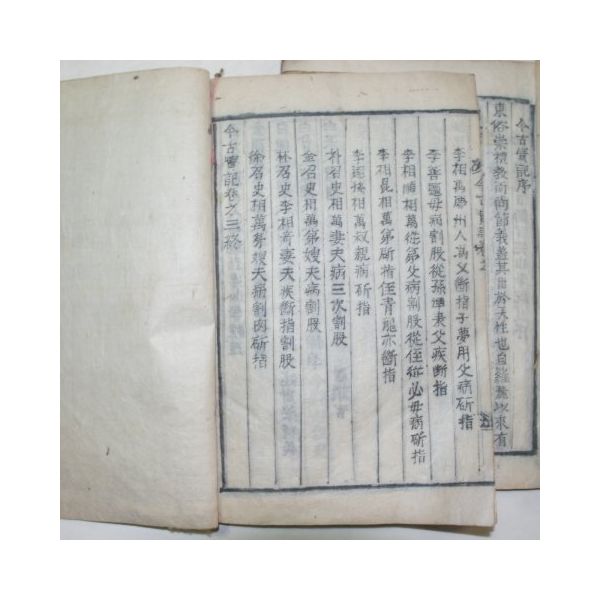 今古實記序
東俗崇禮教而尚節義盖其出於天性也自羅麗以來有
今古實記卷之
李相萬
李相萬廣州人爲父斷指子夢用父病斫指
李善 母病割股從孫 秉父疾斷指
李相 相萬從弟父病割股從侄 必母病斫指
李相昆相萬弟斫指侄青龍亦斷指
李 相萬叔親病斫指
朴召史相萬妻夫病三次割股
金召史相萬弟嫂夫病割股
林召史李相奇妻夫疾斷指割股
徐召史相萬 嫂夫病割肉斫指
今古實記卷之三終